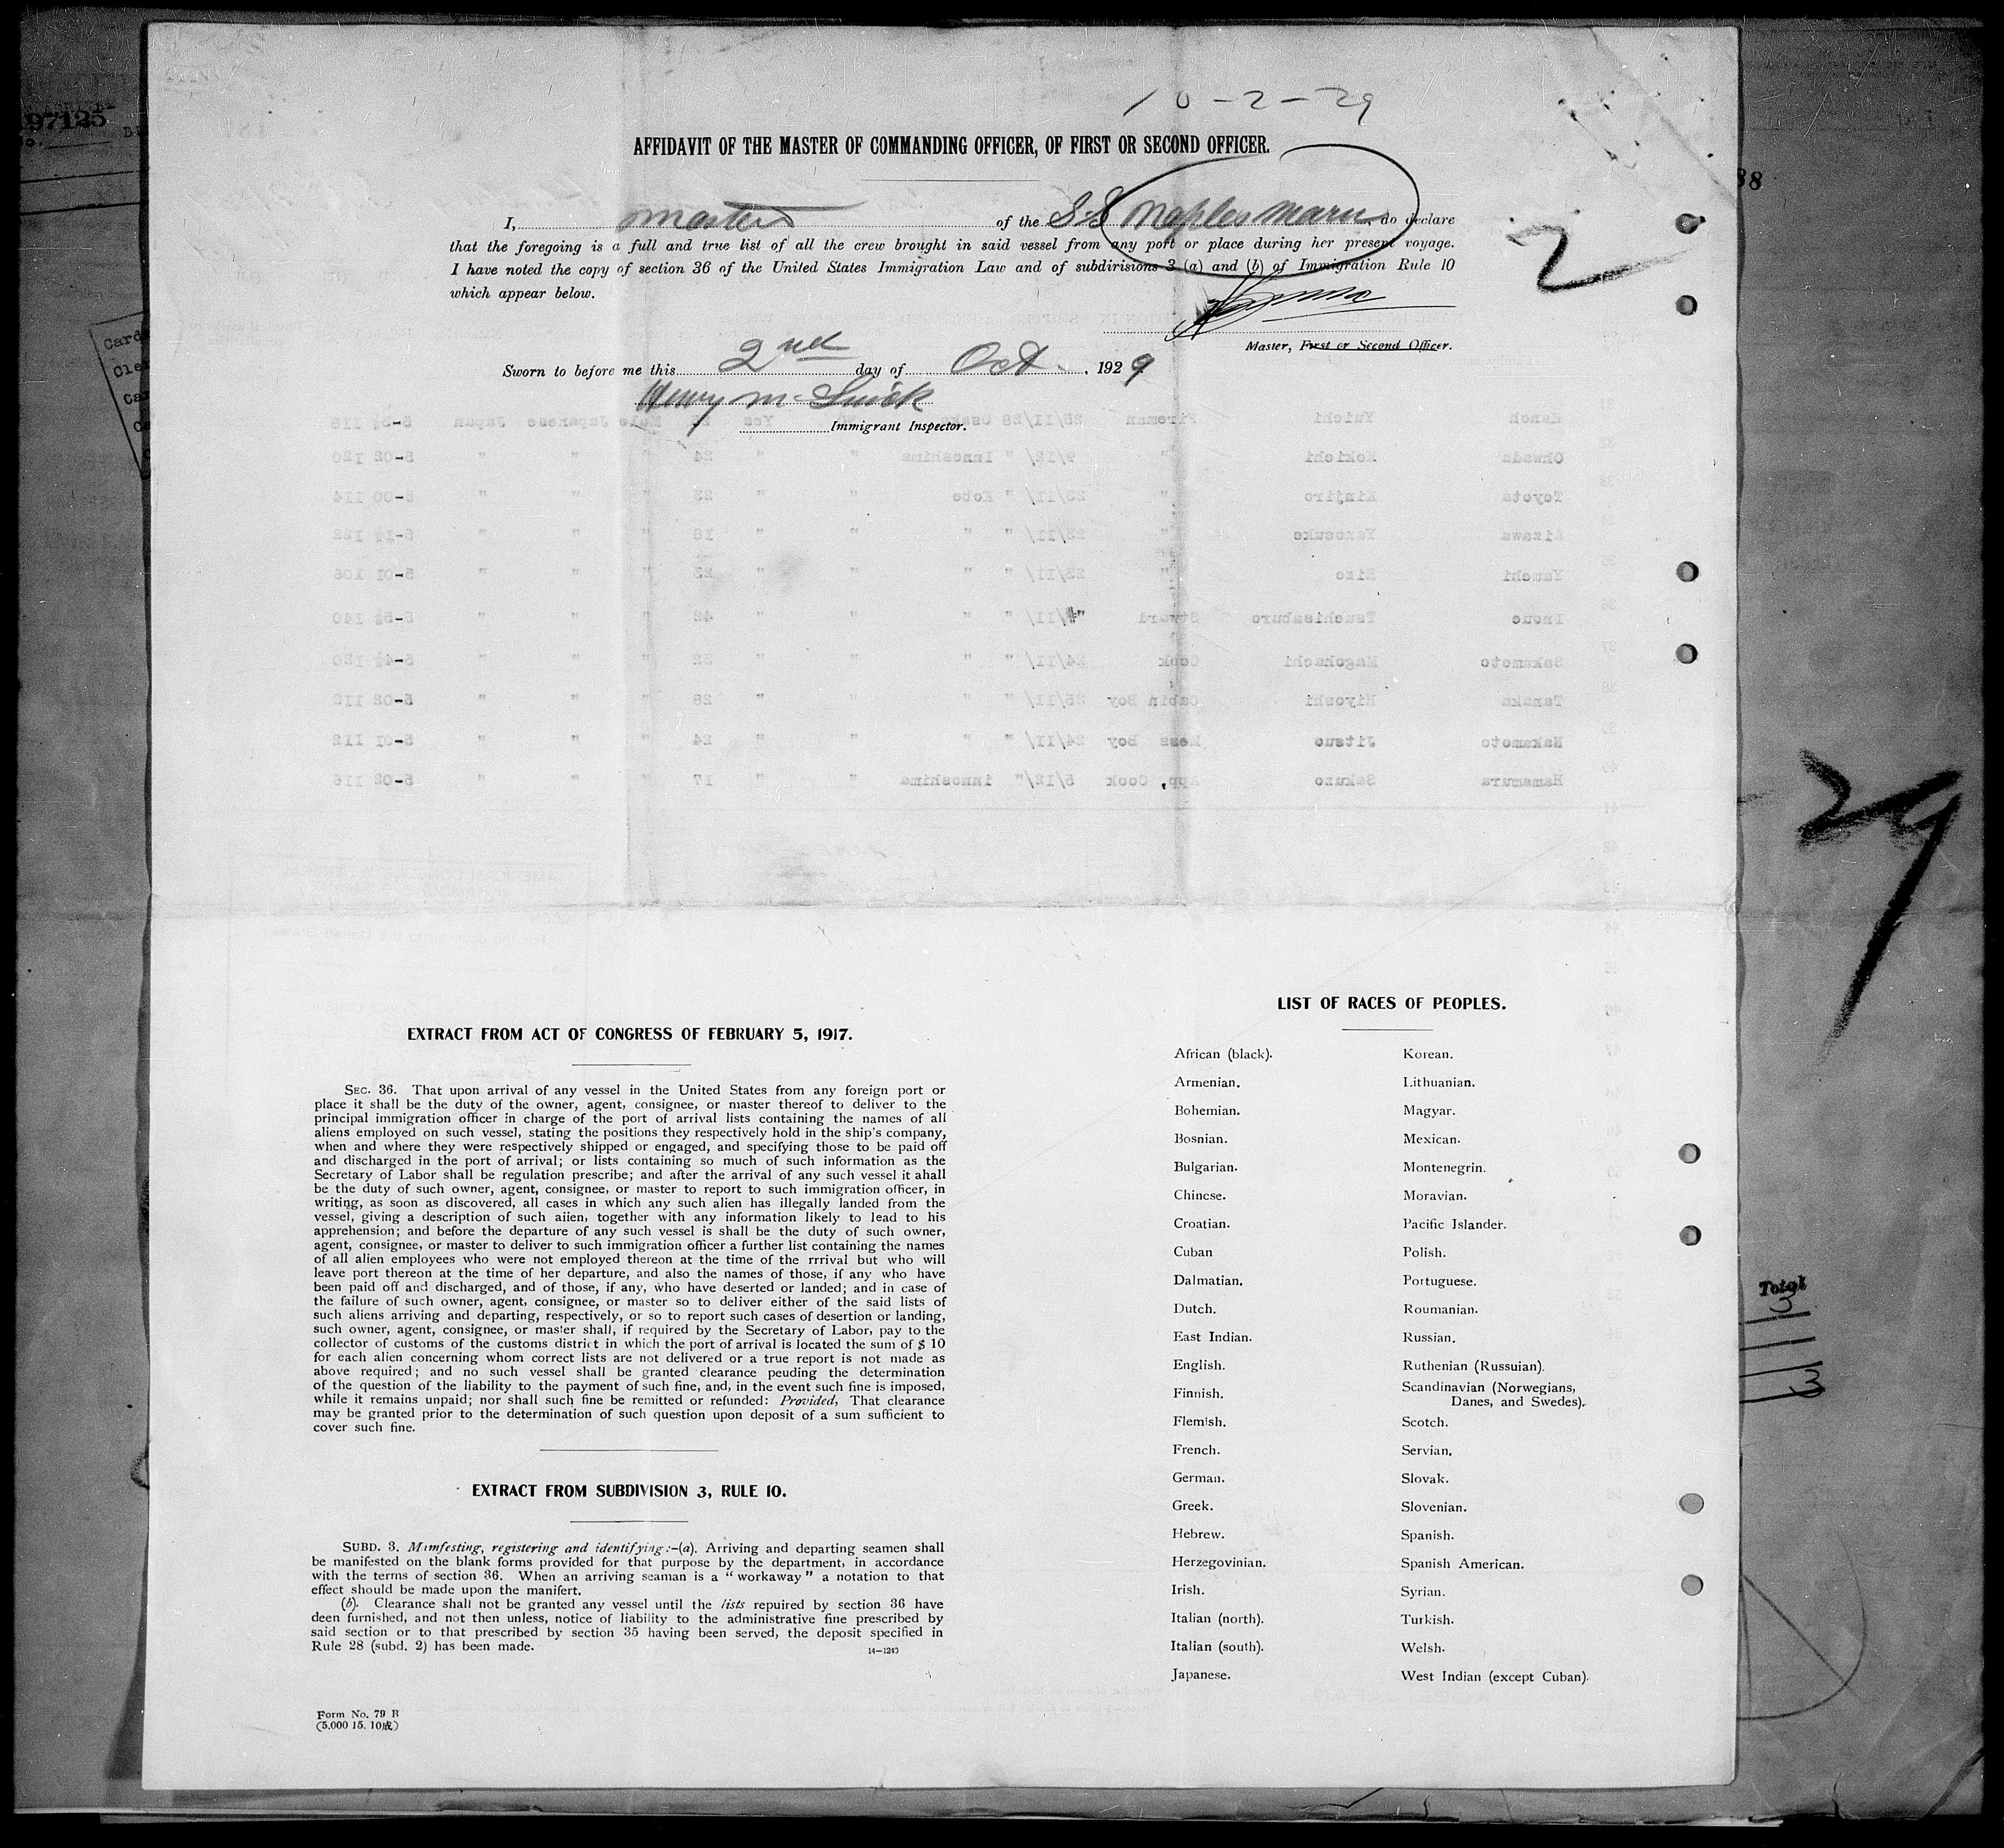 10-2-29
AFFIDAVIT OF THE MASTER OF COMMANDING OFFICER, OF FIRST OR SECOND OFFICER.
I, master of the S.S. Naples Maru, do declare
that the foregoing is a full and true list of all the crew brought in said vessel from any port or place during her present voyage.
I have noted the copy of section 36 of the United States Immigration Law and of subdirisions 3 (a) and (b) of Immigration Rule 10
which appear below.
2
Master, First or Second Officer.
Sworn to before me this 2nd day of Oct., 1929
Henry
Immigrant Inspector.
97125
88
29
Total
EXTRACT FROM ACT OF CONGRESS OF FEBRUARY 5, 1917.
SEC. 36. That upon arrival of any vessel in the United States from any foreign port or
place it shall be the duty of the owner, agent, consignee, or master thereof to deliver to the
principal immigration officer in charge of the port of arrival lists containing the names of all
aliens employed on such vessel, stating the positions they respectively hold in the ship's company,
when and where they were respectively shipped or engaged, and specifying those to be paid off
and discharged in the port of arrival; or lists containing so much of such information as the
Secretary of Labor shall be regulation prescribe; and after the arrival of any such vessel it ahall
be the duty of such owner, agent, consignee, or master to report to such immigration officer, in
writing, as soon as discovered, all cases in which any such alien has illegally landed from the
vessel, giving a description of such aiien, together with any information likely to lead to his
apprehension; and before the departure of any such vessel is shall be the duty of such owner,
agent, consignee, or master to deliver to such immigration officer a further list containing the names
of all alien employees who were not employed thereon at the time of the rrrival but who will
leave port thereon at the time of her departure, and also the names of those, if any who have
been paid off and discharged, and of those, if any, who have deserted or landed; and in case of
the failure of such owner, agent, consignee, or master so to deliver either of the said lists of
such aliens arriving and departing, respectively, or so to report such cases of desertion or landing,
such owner, agent, consignee, or master shall, if required by the Secretary of Labor, pay to the
collector of customs of the customs district in which the port of arrival is located the sum of $ 10
for each alien concerning whom correct lists are not delivered or a true report is not made as
above required; and no such vessel shall be granted clearance peuding the determination
of the question of the liability to the payment of such fine, and, in the event such fine is imposed,
while it remains unpaid; nor shall such fine be remitted or refunded: Provided, That clearance
may be granted prior to the determination of such question upon deposit of a sum sufficient to
cover such fine.
EXTRACT FROM SUBDIVISION 3, RULE 10.
SUBD. 3. Mimfesting, registering and identifying:-(a). Arriving and departing seamen shall
be manifested on the blank forms provided for that purpose by the department, in accordance
with the terms of section 36. When an arriving seaman is a "workaway" a notation to that
effect should be made upon the manifert.
(b). Clearance shall not be granted any vessel until the lists repuired by section 36 have
deen furnished, and not then unless, notice of liability to the administrative fine prescribed by
said section or to that prescribed by section 35 having been served, the deposit specified in
Rule 28 (subd. 2) has been made.
14-1240
Form No. 79 B
(5.000 15. 10成)
LIST OF RACES OF PEOPLES.
African (black). Korean.
Armenian. Lithuanian.
Bohemian. Magyar.
Bosnian. Mexican.
Bulgarian. Montenegrin.
Chinese. Moravian.
Croatian. Pacific Islander.
Cuban Polish.
Dalmatian. Portuguese.
Dutch. Roumanian.
East Indian. Russian.
English. Ruthenian (Russuian).
Finnish. Scandinavian (Norwegians,
Danes, and Swedes).
Flemish. Scotch.
French. Servian.
German. Slovak.
Greek. Slovenian.
Hebrew. Spanish.
Herzegovinian. Spanish American.
Irish. Syrian.
Italian (north). Turkish.
Italian (south). Welsh.
Japanese. West Indian (except Cuban).